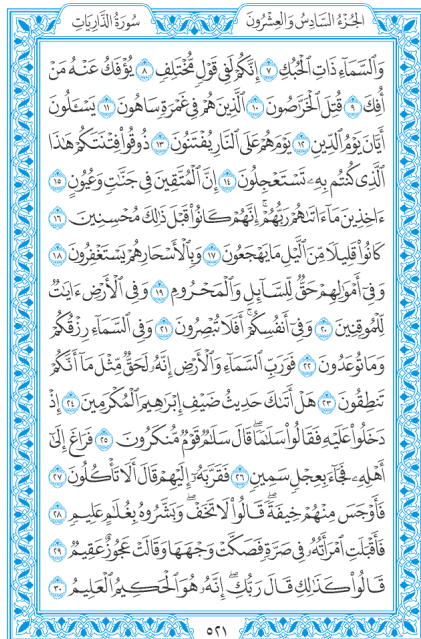 الجُزْءُ السَّادِسُ وَالعِشْرُونَ
سُورَةُ الذَّارِيَاتِ
وَٱلسَّمَآءِ ذَاتِ ٱلْحُبُكِ ٧ إِنَّكُمْ لَفِى قَوْلٍ مُّخْتَلِفٍ ٨ يُؤْفَكُ عَنْهُ مَنْ
أُفِكَ ٩ قُتِلَ ٱلْخَرَّٰصُونَ ١٠ ٱلَّذِينَ هُمْ فِى غَمْرَةٍ سَاهُونَ ١١ يَسْـَٔلُونَ
أَيَّانَ يَوْمُ ٱلدِّينِ ١٢ يَوْمَ هُمْ عَلَى ٱلنَّارِ يُفْتَنُونَ ١٣ ذُوقُوا۟ فِتْنَتَكُمْ هَٰذَا
ٱلَّذِى كُنتُم بِهِۦ تَسْتَعْجِلُونَ ١٤ إِنَّ ٱلْمُتَّقِينَ فِى جَنَّٰتٍ وَعُيُونٍ ١٥
ءَاخِذِينَ مَآ ءَاتَىٰهُمْ رَبُّهُمْ ۚ إِنَّهُمْ كَانُوا۟ قَبْلَ ذَٰلِكَ مُحْسِنِينَ ١٦
كَانُوا۟ قَلِيلًا مِّنَ ٱلَّيْلِ مَا يَهْجَعُونَ ١٧ وَبِٱلْأَسْحَارِ هُمْ يَسْتَغْفِرُونَ ١٨
وَفِىٓ أَمْوَٰلِهِمْ حَقٌّ لِّلسَّآئِلِ وَٱلْمَحْرُومِ ١٩ وَفِى ٱلْأَرْضِ ءَايَٰتٌ
لِّلْمُوقِنِينَ ٢٠ وَفِىٓ أَنفُسِكُمْ ۚ أَفَلَا تُبْصِرُونَ ٢١ وَفِى ٱلسَّمَآءِ رِزْقُكُمْ
وَمَا تُوعَدُونَ ٢٢ فَوَرَبِّ ٱلسَّمَآءِ وَٱلْأَرْضِ إِنَّهُۥ لَحَقٌّ مِّثْلَ مَآ أَنَّكُمْ
تَنطِقُونَ ٢٣ هَلْ أَتَىٰكَ حَدِيثُ ضَيْفِ إِبْرَٰهِيمَ ٱلْمُكْرَمِينَ ٢٤ إِذْ
دَخَلُوا۟ عَلَيْهِ فَقَالُوا۟ سَلَٰمًا ۖ قَالَ سَلَٰمٌ قَوْمٌ مُّنكَرُونَ ٢٥ فَرَاغَ إِلَىٰٓ
أَهْلِهِۦ فَجَآءَ بِعِجْلٍ سَمِينٍ ٢٦ فَقَرَّبَهُۥٓ إِلَيْهِمْ قَالَ أَلَا تَأْكُلُونَ ٢٧
فَأَوْجَسَ مِنْهُمْ خِيفَةً ۖ قَالُوا۟ لَا تَخَفْ ۖ وَبَشَّرُوهُ بِغُلَٰمٍ عَلِيمٍ ٢٨
فَأَقْبَلَتِ ٱمْرَأَتُهُۥ فِى صَرَّةٍ فَصَكَّتْ وَجْهَهَا وَقَالَتْ عَجُوزٌ عَقِيمٌ ٢٩
قَالُوا۟ كَذَٰلِكِ قَالَ رَبُّكِ ۖ إِنَّهُۥ هُوَ ٱلْحَكِيمُ ٱلْعَلِيمُ ٣٠
٥٢١